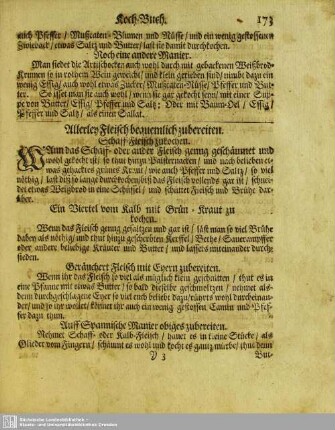 Koch-Buch. 173
auch Pfeffer / Muscaten-Blumen und Nüsse / und ein wenig gestossen
Zwieback / etwas Saltz und Butter / last sie damit durchkochen.
Noch eine andere Manier.
Man siedet die Artischocken auch wohl durch mit gebackenen Weißbrod-
Krumen so in rothem Wein geweicht / und klein gerieben sind / nimbt dazu ein
wenig Essig / auch wohl etwas Zucker / Muscaten-Nüsse / Pfeffer und But-
ter. So isset man sie auch wohl / wenn sie gar gekocht seyn / mit einer Sup-
pe von Butter / Essig / Pfeffer und Saltz: Oder mit Baum-Oel / Essig /
Pfeffer und Saltz / als einer Sallat.
Allerley Fleisch bequemlich zubereiten.
Schaff-Fleisch zukochen.
WAnn das Schaff- oder ander Fleisch genug geschäumet und
wohl gekocht ist / so thut hinzu Pasternacken / und nach belieben et-
was gehacktes grünes Kraut / wie auch Pfeffer und Saltz / so viel
nöthig / last dis so lange durchkochen / biß das Fleisch vollends gar ist / schnei-
det etwas Weißbrod in eine Schüssel / und schüttet Fleisch und Brühe dar-
über.
Ein Viertel vom Kalb mit Grün-Kraut zu
kochen.
Wenn das Fleisch genug gesaltzen und gar ist / läst man so viel Brühe
dabey als nöthig / und thut hinzu gescherbten Kerffel / Beete / Saurampffer
oder andere beliebige Kräuter und Butter / und lassets miteinander durch-
sieden.
Geräuchert Fleisch mit Eyern zubereiten.
Wenn ihr das Fleisch so viel als müglich klein geschnitten / thut es in
eine Pfanne mit etwas Butter / so bald dieselbe geschmoltzen / nehmet als-
denn durchgeschlagene Eyer so viel euch beliebt dazu / rührts wohl durcheinan-
der / und so ihr wollet / könnet ihr auch ein wenig gestossen Camin und Pfef-
fer dazu thun.
Auff Spannische Manier obiges zubereiten.
Nehmet Schaff- oder Kalb-Fleisch / hauet es in kleine Stücke / als
Glieder vom Fingern / schäumt es wohl und kocht es gantz mürbe / thut denn
Y 3 But-